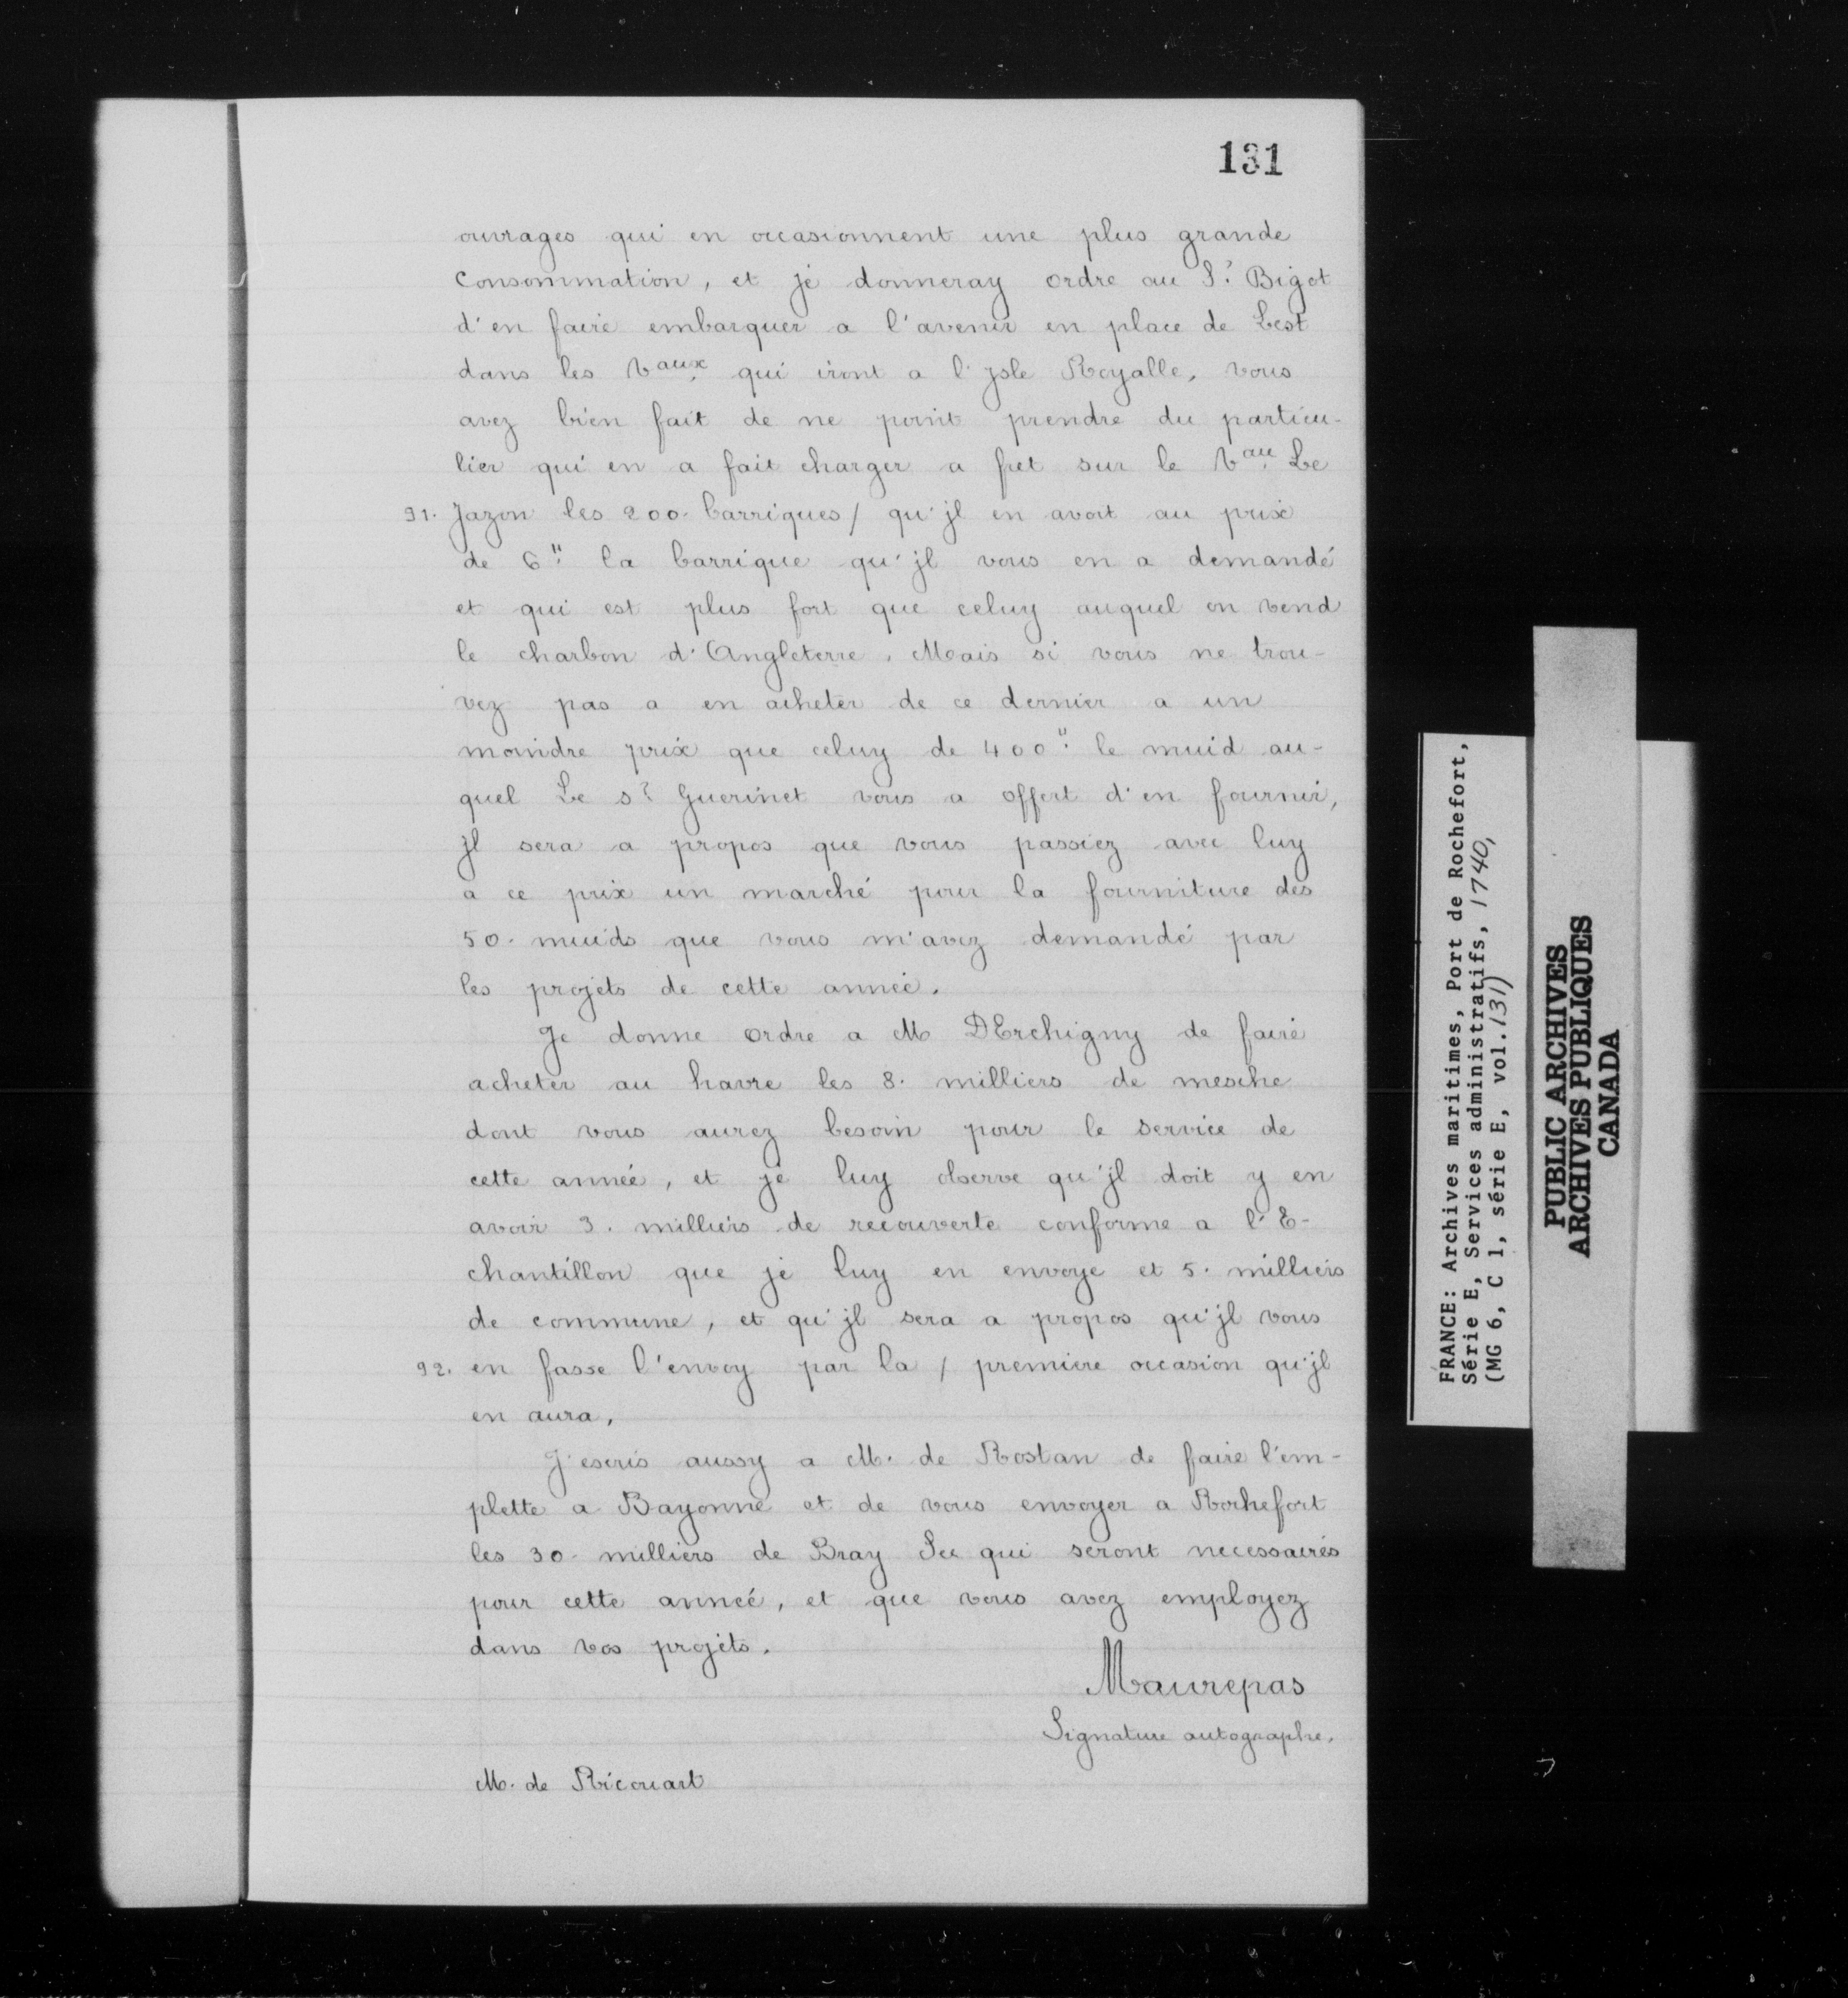 131
ouvrages qui en occasionnent une plus grande
consommation, et je donneray ordre au S.r Bigot
d'en faire embarquer a l'avenir en place de Lest
dans les Vaux. qui iront a l'jsle Royalle, vous
avez bien fait de ne point prendre du particu-
lier qui en a fait charger a fret sur le Vau. Le
91. Jazon les 200. barriques / qu'jl en avoit au prix
de 6.ll la barrique qu'jl vous en a demandé
et qui est plus fort que celuy auquel on vend
le charbon d'Angleterre. Mais si vous ne trou-
vez pas a en acheter de ce dernier a un
moindre prix que celuy de 400.ll le muid au-
quel Le s.r Guerinet vous a offert d'en fournir,
Jl sera a propos que vous passiez avec luy
a ce prix un marché pour la fourniture des
50. muids que vous m'avez demandé par
les projets de cette année.
Je donne ordre a M DErchigny de faire
acheter au havre les 8. milliers de mesche
dont vous aurez besoin pour le service de
cette année, et je luy observe qu'jl doit y en
avoir 3. milliers de recouverte conforme a l'E-
chantillon que je luy en envoye et 5. milliers
de commune, et qu'jl sera a propos qu'jl vous
92. en fasse l'envoy par la / premiere occasion qu'jl
en aura.
J'escris aussy a M. de Rostan de faire l'em-
plette a Bayonne et de vous envoyer a Rochefort
les 30. milliers de Bray Sec qui seront necessaires
pour cette année, et que vous avez employez
dans vos projets.
Maurepas
Signature autographe.
M. de Ricouart
FRANCE: Archives maritimes, Port de Rochefort,
Série E, Services administratifs, 1740,
(MG 6, C 1, série E, vol. 131)
PUBLIC ARCHIVES
ARCHIVES PUBLIQUES
CANADA